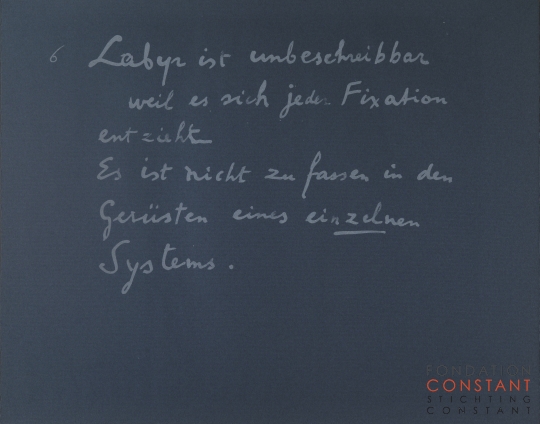 6 Labyr ist unbeschreibbar
weil es sich jeder Fixation
entzieht
Es ist nicht zu fassen in den
Gerüsten eines einzelnen
Systems.
FONDATION
CONSTANT
STICHTING
CONSTANT